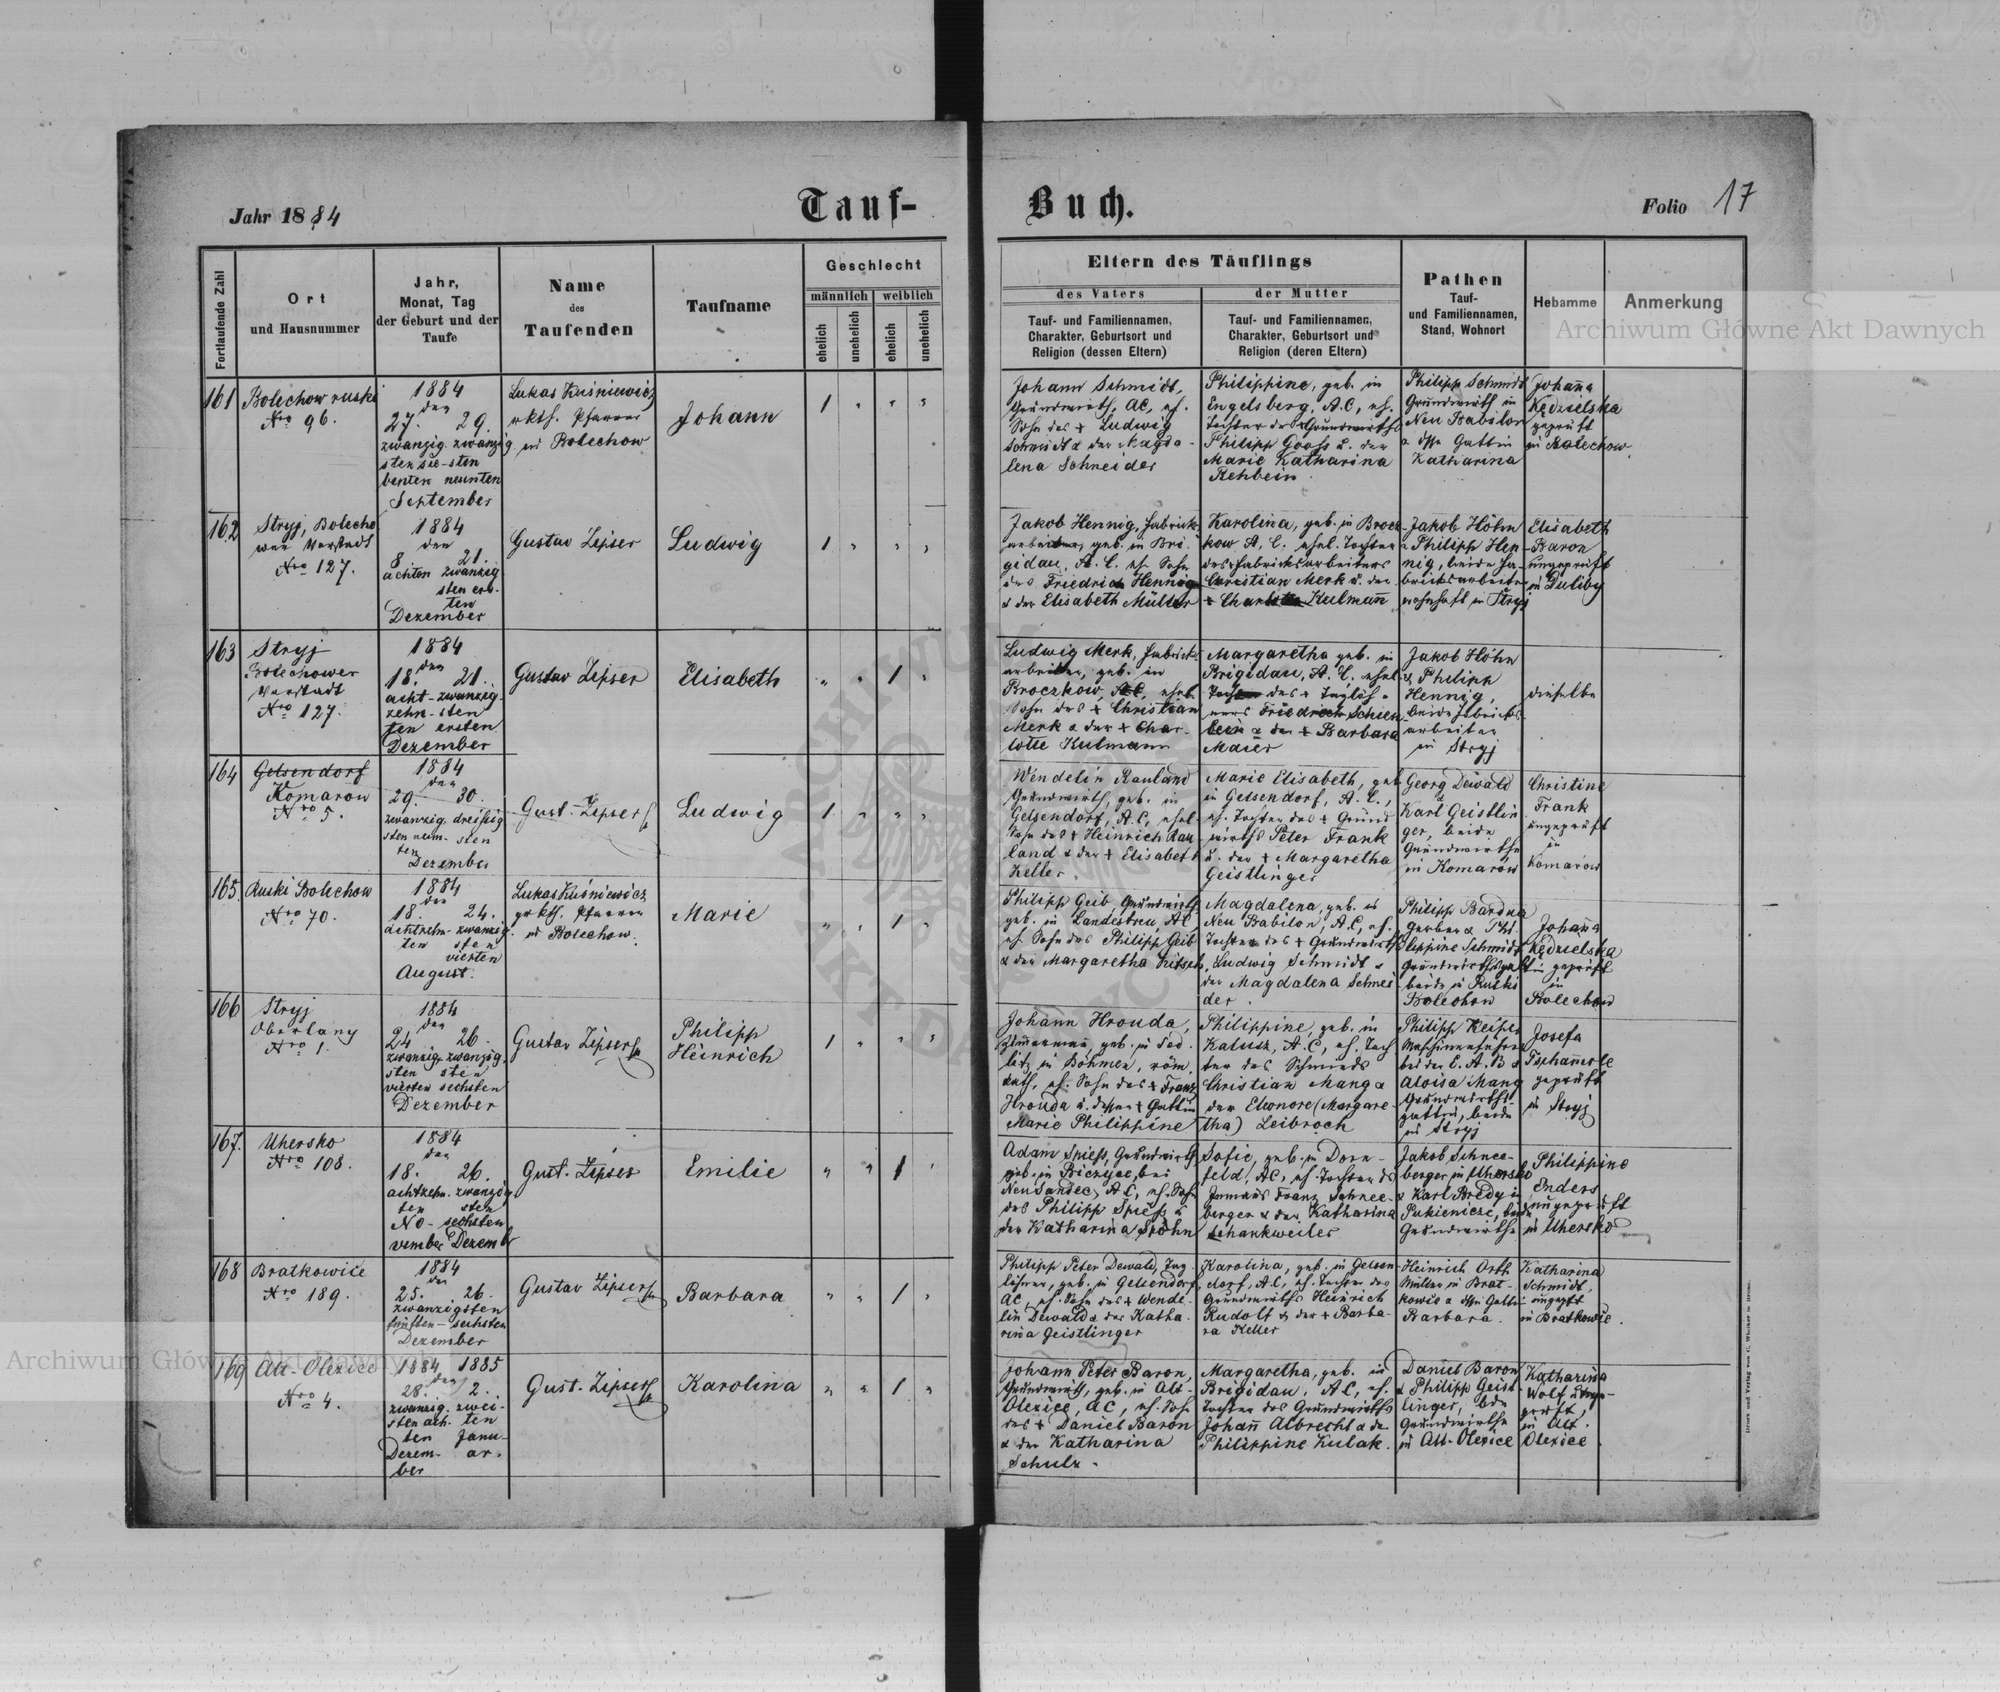 Jahr 1884
Tauf-
Buch.
Folio 17
Fortlaufende Zahl
Ort
und Hausnummer
Jahr,
Monat, Tag
der Geburt und der
Taufe
Name
des
Taufenden
Taufname
Geschlecht
männlich
weiblich
ehelich
unehelich
ehelich
unehelich
Eltern des Täuflings
des Vaters
Tauf- und Familiennamen,
Charakter, Geburtsort und
Religion (dessen Eltern)
der Mutter
Tauf- und Familiennamen,
Charakter, Geburtsort und
Religion (deren Eltern)
Pathen
Tauf-
und Familiennamen,
Stand, Wohnort
Hebamme
Anmerkung
Archiwum Główne Akt Dawnych
161
Bolechow ruski
Nro 96.
1884
den
27. 29.
zwanzig zwanzig
sten sie- sten
benten neunten
September
Lukas Kuśniewicz
rkth. Pfarrer
in Bolechow
Johann
1 " " "
Johann Schmidt,
Grundwirth, AC, eh.
Sohn des + Ludwig
Schmidt & der Magda-
lena Schneider
Philippine, geb. in
Engelsberg, A.C, eh.
Tochter des Grundwirths
Philipp Gooss u. der
Marie Katharina
Rehbein
Philipp Schmidt
Grundwirth in
Neu Babilon
& dssn Gattin
Katharina
Johanna
Kędzielska
geprüft
in Bolechow.
162
Stryj, Bolecho
wer Vorstadt
Nro 127.
1884
den
8 21.
achten zwanzig
sten ers-
ten
Dezember
Gustav Zipser
Ludwig
1 " " "
Jakob Hennig, Fabriks
arbeiter, geb. in Bri-
gidau, A.C. eh. Sohn
des Friedrich Hennig
& der Elisabeth Müller
Karolina, geb. in Brocz
kow A.C. ehel. Tochter
des Fabriksarbeiters
Christian Merk u. der
+ Charlotte Kulmann
Jakob Höhn
& Philipp Hen-
nig, beide Fa-
briksarbeiter
wohnhaft in Stryj
Elisabeth
Baron
ungeprüft
in Duliby
163
Stryj
Bolechower
Vorstadt
Nro 127.
1884
den
18. 21.
acht- zwanzig
zehn- sten
ten ersten
Dezember
Gustav Zipser
Elisabeth
" " 1 "
Ludwig Merk, Fabriks
arbeiter, geb. in
Broczkow, AC, ehel.
Sohn des + Christian
Merk & der + Char-
lotte Kulmann
Margaretha geb. in
Brigidau, A.C. ehel.
Tochter des + Taglöh-
ners Friedrich Schien
bein & der + Barbara
Maier
Jakob Höhn
& Philipp
Hennig,
beide Fabriks-
arbeiter
in Stryj
dieselbe
164
Gelsendorf
Komarow
Nro 5.
1884
den
29. 30.
zwanzig dreißig
sten neun- sten
ten
Dezember
Gust. Zipser
Ludwig
1 " " "
Wendelin Rauland
Grundwirth, geb. in
Gelsendorf, A.C, ehel
Sohn des + Heinrich Rau
land & der + Elisabeth
Keller
Marie Elisabeth, geb
in Gelsendorf, A.C.,
eh. Tochter des + Grund
wirths Peter Frank
u. der + Margaretha
Geistlinger
Georg Dewald
&
Karl Geistlin
ger, beide
Grundwirthe
in Komarow
Christine
Frank
ungeprüft
in
Komarow
165
Ruski Bolechow
Nro 70.
1884
den
18. 24.
achtzehn- zwanzig
ten sten
vierten
August.
Lukas Kuśniewicz
gr kth. Pfarrer
in Bolechow.
Marie
" " 1 "
Philipp Geib Grundwirth
geb. in Landestreu, AC,
eh. Sohn des Philipp Geib
& der Margaretha Fritsch
Magdalena, geb. in
Neu Babilon, A.C, eh.
Tochter des + Grundwirths
Ludwig Schmidt &
der Magdalena Schnei
der.
Philipp
Gerber & Phi-
lippine Schmidt
beide in Ruski
Bolechow
Johanna
Kędzielska
geprüft
in
Bolechow
166
Stryj
Oberlany
Nro 1.
1884
den
24 26.
zwanzig zwanzig
sten sten
vierten sechsten
Dezember
Gustav Zipser
Philipp
Heinrich
1 " " "
Johann Hrouda,
Zimmermann, geb. in Sed-
litz in Böhmen, röm.
kath. eh. Sohn des + Franz
Hrouda u. dessen + Gattin
Marie Philippine
Philippine, geb. in
Kalusz, A.C, eh. Toch
ter des Schmieds
Christian Mang &
der Eleonore (Margare-
tha) Leibrock
Philipp Keiper
Maschinenführer
bei der E.A.B &
Aloisa Mang
Grundwirths-
gattin, beide
in Stryj
Josefa
geprüft
in Stryj
167.
Uhersko
Nro 108.
1884
den
18. 26.
achtzehn- zwanzig
ten sten
No- sechsten
vember Dezemb
Gust. Zipser
Emilie
" " 1 "
Adam Spieß, Grundwirth
geb. in Biczyce bei
Neu Sandec, A.C, eh. Sohn
des Philipp Spieß u
der Katharina Ströhn
Sofie, geb. in Dorn-
feld, AC, eh. Tochter ds
Inmans Franz Schnee-
berger & der Katharina
Schankweiler
Jakob Schnee-
berger in Uhersko
& Karl Bredy in
Pukienicze, beide
Grundwirthe
Philippine
Enders
ungeprüft
in Uhersko
168
Bratkowice
Nro 189.
1884
den
25. 26.
zwanzigsten
fünften- sechsten
Dezember
Gustav Zipser
Barbara
" " 1 "
Philipp Peter Dewald, Tag-
löhner, geb. in Gelsendorf,
AC, eh. Sohn des + Wende-
lin Dewald & der Katha-
rina Geistlinger
Karolina, geb. in Gelsen-
dorf, AC, eh. Tochter des
Grundwirths Heinrich
Rudolf & der + Barba-
ra Keller
Heinrich Orth
Müller in Brat-
kowice & dssn Gattin
Barbara.
Katharina
Schmidt,
ungeprft
in Bratkowice.
169
Alt-Olexice
Nro 4.
1884 1885
den
28. 2.
zwanzig- zwei-
sten ach- ten
ten Janu-
Dezem- ar.
ber
Gust. Zipser
Karolina
" " 1 "
Johann Peter Baron,
Grundwirth, geb. in Alt-
Olexice, AC, eh. Sohn
des + Daniel Baron
& der Katharina
Schulz.
Margaretha, geb. in
Brigidau, AC, eh.
Tochter des Grundwirths
Johann Albrecht & der
Philippine Kulak.
Daniel Baron
& Philipp Geist-
linger, bde
Grundwirthe
in Alt-Olexice
Katharina
Wolf
in Alt-
Olexice
Archiwum Główne Akt Dawnych